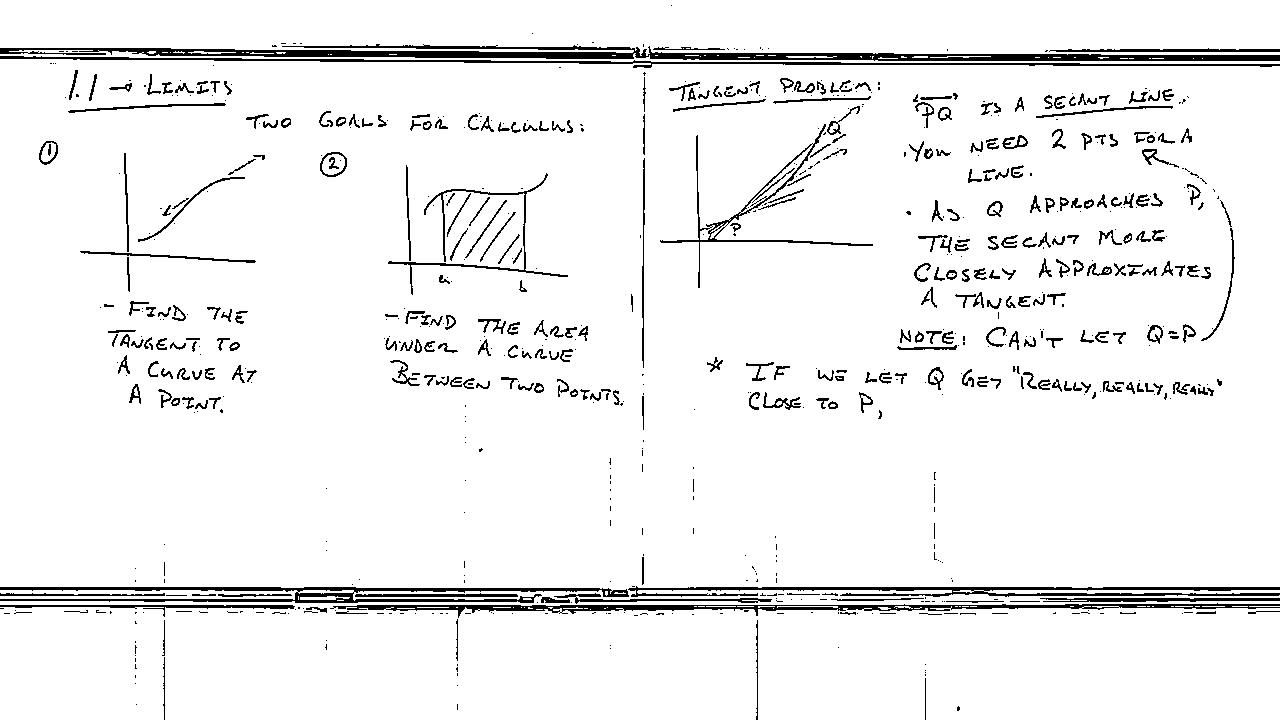 1.1 → LIMITS
TWO GOALS FOR CALCULUS:
①
- FIND THE
TANGENT TO
A CURVE AT
A POINT.
②
a
b
- FIND THE AREA
UNDER A CURVE
BETWEEN TWO POINTS.
TANGENT PROBLEM:
Q
P
PQ IS A SECANT LINE.
· YOU NEED 2 PTS FOR A
LINE.
· AS Q APPROACHES P,
THE SECANT MORE
CLOSELY APPROXIMATES
A TANGENT.
NOTE: CAN'T LET Q=P
* IF WE LET Q GET "REALLY, REALLY, REALLY"
CLOSE TO P,